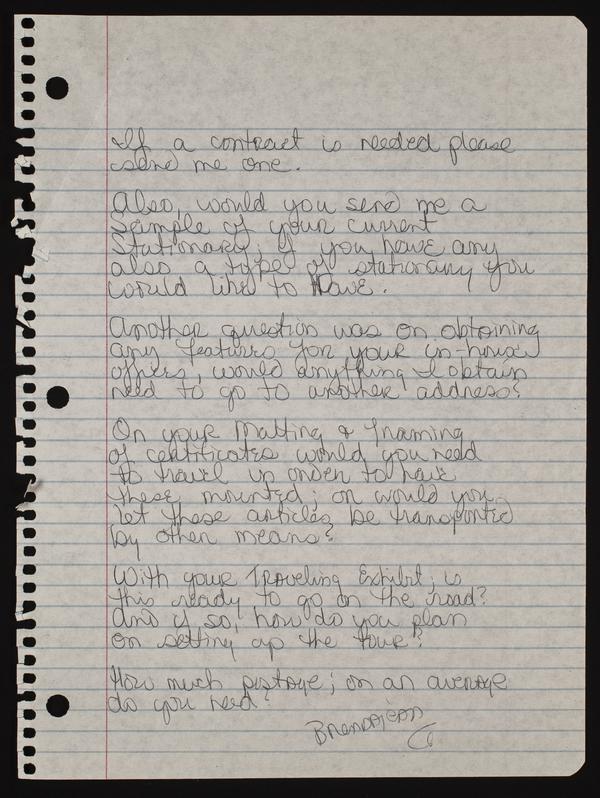 If a contract is needed please
send me one.
Also, would you send me a
sample of your current
Stationary; if you have any
also a type of stationary you
would like to Have.
Another question was on obtaining
any features for your in-house
offices, would anything I obtain
need to go to another address?
On your Matting & framing
of certificates would you need
to travel in order to have
these mounted; or would you
let these articles be transported
by other means?
With your Traveling Exhibit, is
this ready to go on the road?
And if so, how do you plan
on setting up the tour?
How much postage; on an average
do you need?